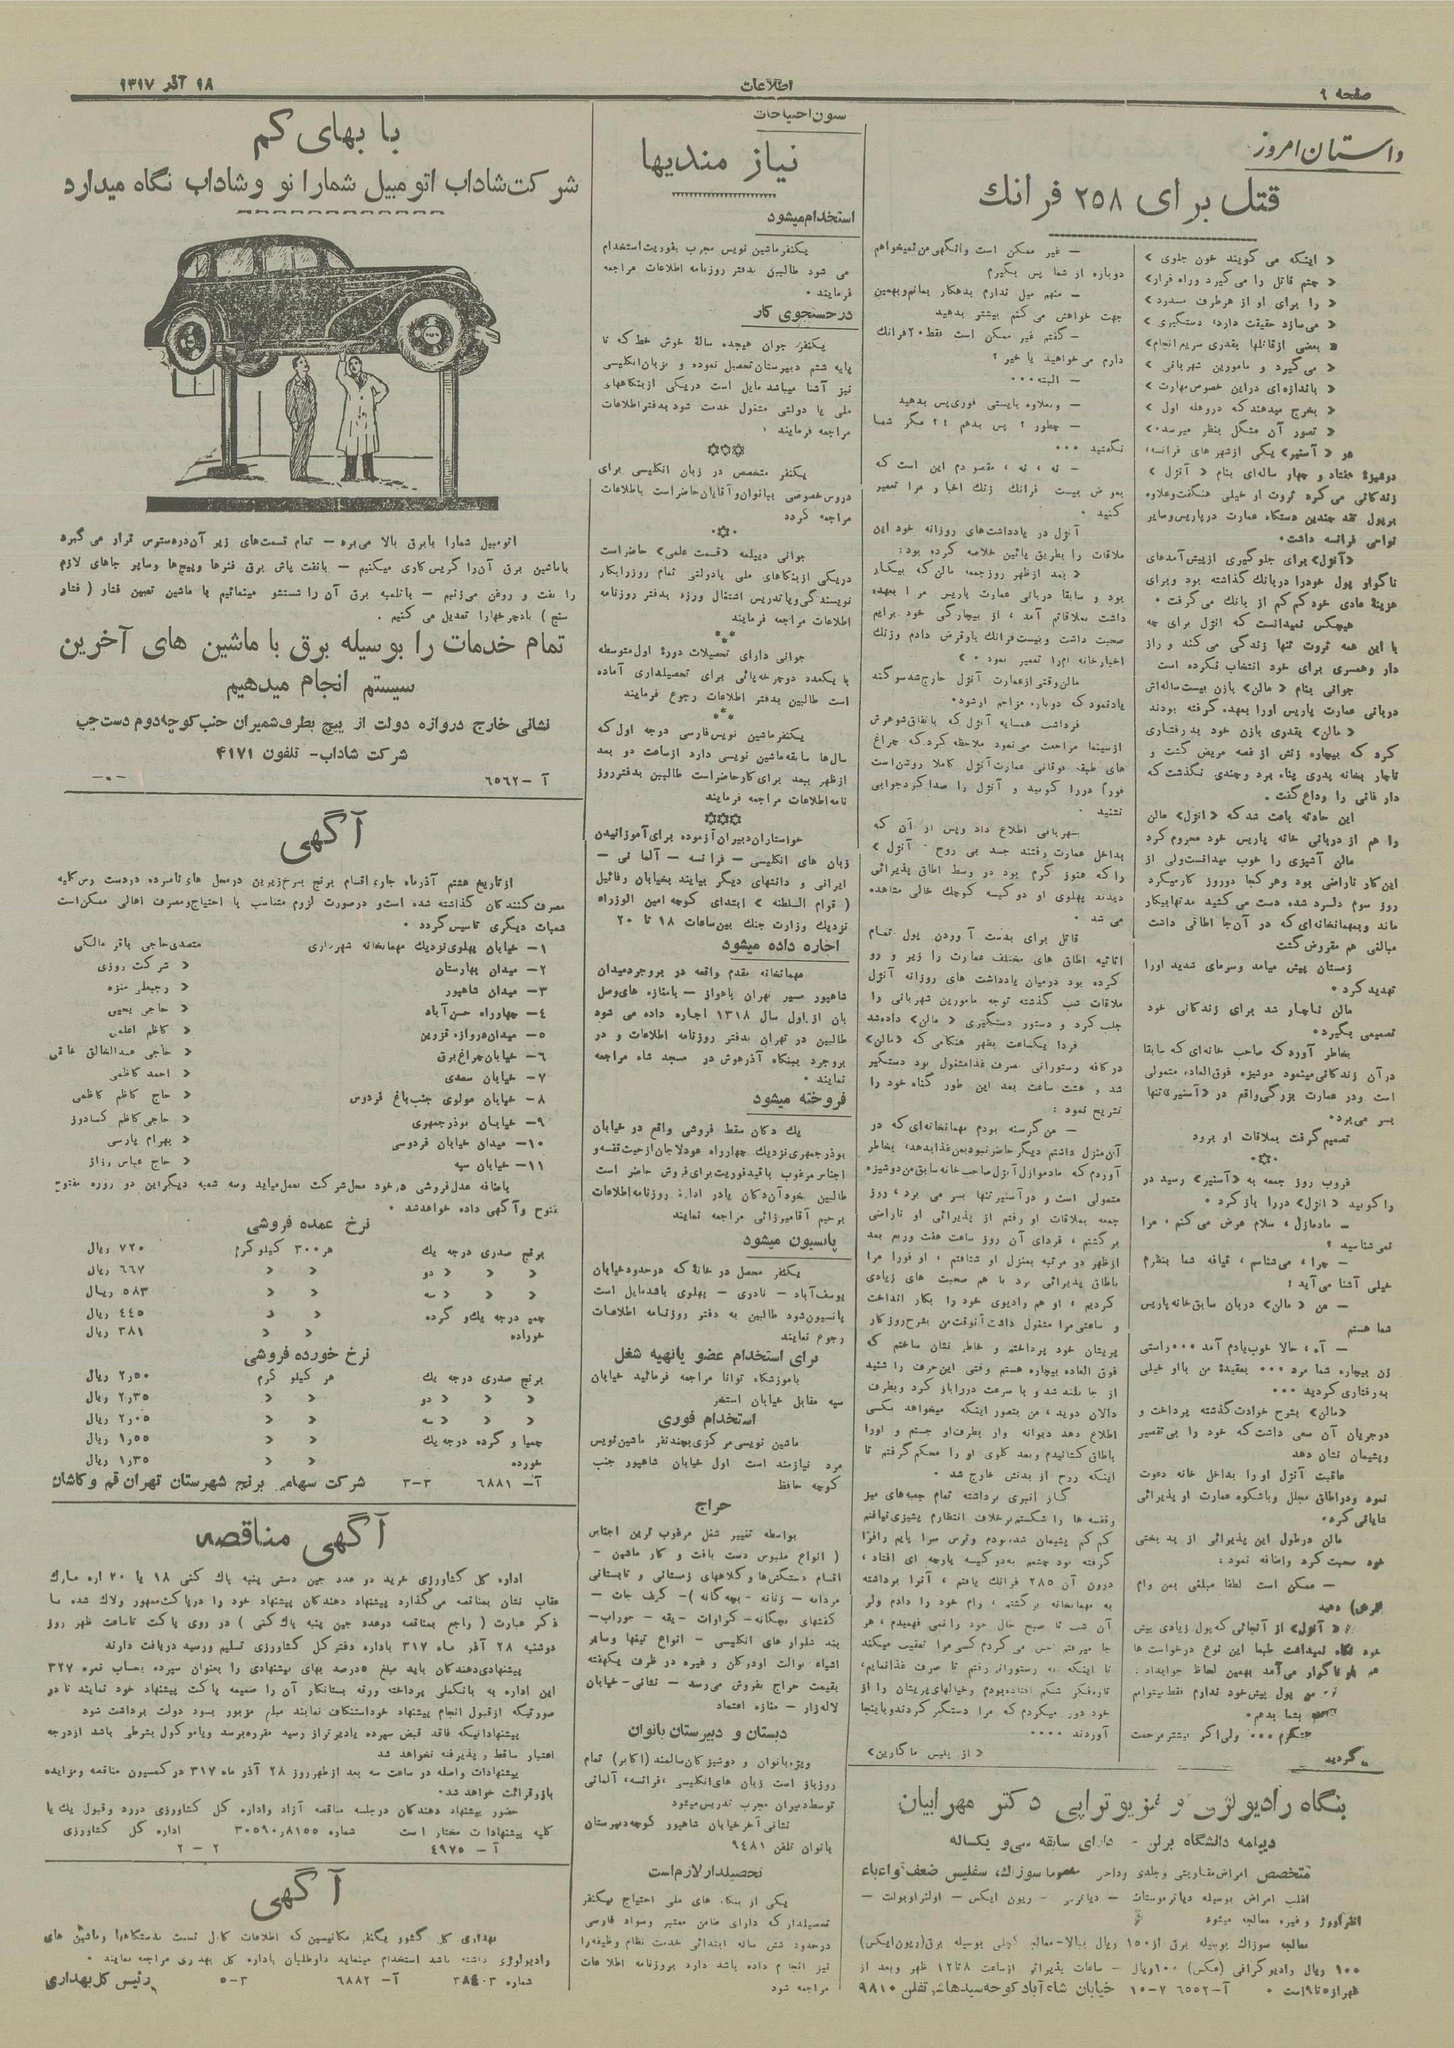 صفحه ۶
اطلاعات
۱۸ آذر ۱۳۱۷
داستان امروز
قتل برای ۲۵۸ فرانك
« اینکه می گویند خون جلوی »
« چشم قاتل را می گیرد وراه فرار»
« را برای او از هرطرف مسدود »
« می‌سازد حقیقت دارد، دستگیری »
« بعضی ازقاتلها بقدری سریع انجام»
« می‌گیرد و مامورین شهربانی »
« باندازه‌ای دراین خصوص مهارت »
« بخرج میدهند که دروهله اول »
« تصور آن مشکل بنظر میرسد.»
دوشیزهٔ هفتاد و چهار ساله‌ای بنام « آنژل »
زندگانی می کرد ثروت او خیلی هنگفت وعلاوه
برپول نقد چندین دستگاه عمارت درپاریس وسایر
نواحی فرانسه داشت.
«آنژل» برای جلوگیری ازپیش آمدهای
ناگوار پول خودرا دربانك گذاشته بود وبرای
هزینهٔ عادی خود کم کم از بانك می گرفت .
هیچکس نمیدانست که آنژل برای چه
با این همه ثروت تنها زندگی می کند و راز
دار وهمسری برای خود انتخاب نکرده است
جوانی بنام « مالن» بازن بیست ساله‌اش
دربانی عمارت پاریس اورا بعهده گرفته بودند
« مالن» بقدری بازن خود بدرفتاری
کرد که بیچاره زنش از غصه مریض گشت و
ناچار بخانه پدری پناه برد وچندی نگذشت که
دار فانی را وداع گفت .
این حادثه باعث شد که « آنژل» مالن
را هم از دربانی خانه پاریس خود محروم کرد
مالن آشپزی را خوب میدانست ولی از
این کار ناراضی بود وهر کجا دوروز کارمیکرد
روز سوم دلسرد شده دست می کشید مدتها بیکار
ماند وبمهمانخانه‌ای که در آن‌جا اطاقی داشت
مبالغی هم مقروض گشت
زمستان پیش میامد وسرمای شدید اورا
تهدید کرد .
مالن ناچار شد برای زندگانی خود
تصمیمی بگیرد.
بخاطر آورد که صاحب خانه‌ای که سابقا
درآن زندگانی مینمود دوشیزه فوق‌العاده متمولی
است ودر عمارت بزرگی واقع در «آسنیر» تنها
بسر می‌برد.
تصمیم گرفت بملاقات او برود
غروب روز جمعه به «آسنیر» رسید در
را کوبید «آنژل» دررا باز کرد .
— مادمازل ، سلام عرض می کنم ، مرا
نمی‌شناسید ؟
— چرا ، می‌شناسم ، قیافه شما بنظرم
خیلی آشنا می‌آید !
— من « مالن» دربان سابق خانه پاریس
شما هستم
— آه ، حالا خوب یادم آمد ... راستی
زن بیچاره شما مرد ... بعقیدهٔ من بااو خیلی
بدرفتاری کردید ...
«مالن» بشرح حوادث گذشته پرداخت و
درجریان آن سعی داشت که خود را بی‌تقصیر
وپشیمان نشان دهد
عاقبت آنژل اورا بداخل خانه دعوت
نمود ودراطاق مجلل وباشکوه عمارت او پذیرائی
شایانی کرد.
مالن درطول این پذیرائی از بد بختی
خود صحبت کرد واضافه نمود :
— ممکن است لطفا مبلغی بمن وام
(قرض) دهید
« آنژل» از آنجائی که پول زیادی پیش
خود نگاه نمیداشت طبعا این نوع درخواست ها
پول پیش خود ندارم فقط میتوانم
بشما بدهم.
— متشکرم ... ولی اگر بیشتر مرحمت
گردید
— غیر ممکن است وانگهی من نمیخواهم
دوباره از شما پس بگیرم
— منهم میل ندارم بدهکار بمانم وبهمین
جهت خواهش می کنم بیشتر بدهید
— گفتم غیر ممکن است فقط ۲۰ فرانك
دارم می‌خواهید یا خیر ؟
— البته ...
— وبعلاوه بایستی فوری پس بدهید
— چطور ؟ پس بدهم ؟! مگر شما
نگفتید ...
— نه ، نه ، مقصودم این است که
بعوض بیست فرانك زنك اخبار مرا تعمیر
کنید .
آنژل در یادداشت‌های روزانه خود این
ملاقات را بطریق پائین خلاصه کرده بود:
« بعد ازظهر روزجمعه مالن که بیکار
بود و سابقا دربانی عمارت پاریس مرا بعهده
داشت بملاقاتم آمد ، از بیچارگی خود برایم
صحبت داشت وبیست فرانك باوقرض دادم وزنك
اخبارخانه ام را تعمیر نمود . »
مالن وقتی ازعمارت آنژل خارج شد سوگند
یادنمود که دوباره مزاحم اوشود.
فرداشب همسایه آنژل که باتفاق شوهرش
ازسینما مراجعت می‌نمود ملاحظه کرد که چراغ
های طبقه فوقانی عمارت آنژل کاملا روشن است
فورا دررا کوبید و آنژل را صدا کرد جوابی
نشنید .
بشهربانی اطلاع داد وپس از آن که
بداخل عمارت رفتند جسد بی روح « آنژل »
را که هنوز گرم بود در وسط اطاق پذیرائی
دیدند پهلوی او دو کیسه کوچك خالی مشاهده
می شد .
قاتل برای بدست آوردن پول تمام
اثاثیه اطاق های مختلف عمارت را زیر و رو
کرده بود درمیان یادداشت های روزانه آنژل
ملاقات شب گذشته توجه مامورین شهربانی را
جلب کرد و دستور دستگیری « مالن» داده شد
فردا یکساعت بظهر هنگامی که «مالن»
درکافه رستورانی بصرف غذا مشغول بود دستگیر
شد و هشت ساعت بعد این طور گناه خود را
تشریح نمود :
— من گرسنه بودم مهمانخانه‌ای که در
آن منزل داشتم دیگر حاضر نبود بمن غذا بدهد، بخاطر
آوردم که مادموازل آنژل صاحب خانه سابق من دوشیزه
متمولی است و درآسنیر تنها بسر می برد ، روز
جمعه بملاقات او رفتم از پذیرائی او ناراضی
برگشتم ، فردای آن روز ساعت هفت وربع بعد
ازظهر دو مرتبه بمنزل او شتافتم ، او فورا مرا
باطاق پذیرائی برد با هم صحبت های زیادی
کردیم ، او هم رادیوی خود را بکار انداخت
و ساعتی مرا مشغول داشت آنوقت من بشرح روزگار
پریشان خود پرداختم و خاطر نشان ساختم که
فوق العاده بیچاره هستم وقتی این‌حرف را شنید
از جا بلند شد و با سرعت دررا باز کرد وبطرف
دالان دوید ، من بتصور اینکه میخواهد بکسی
اطلاع دهد دیوانه وار بطرف او جستم و اورا
باطاق کشانیدم وبعد گلوی او را محکم گرفتم تا
اینکه روح از بدنش خارج شد .
گاز انبری برداشته تمام جعبه‌های میز
وقفسه ها را شکستم برخلاف انتظارم پشیزی نیافتم
کم کم پشیمان شده بودم وترس سرا پایم رافرا
گرفته بود چشمم به دو کیسه پارچه ای افتاد ،
درون آن ۲۸۵ فرانك یافتم ، آنرا برداشته
به مهمانخانه برگشتم ، وام خود را دادم ولی
آن شب تا صبح حال خود را نمی فهمیدم ، هر
جا میرفتم حس می کردم کسی مرا تعقیب میکند
تا اینکه به رستوران رفتم تا صرف غذا نمایم،
تازه فکر شکم افتاده بودم وخیالهای پریشان را از
خود دور میکردم که مرا دستگیر کردند وباینجا
آوردند ....
« از پلیس ماگازین»
بنگاه رادیولژی و فیزیوتراپی دکتر مهرابیان
دیپلمه دانشگاه برلن - دارای سابقه سی و یکساله
متخصص امراض مقاربتی وجلدی وداخلی مخصوصا سوزاك، سفلیس ضعف قواءباء
اغلب امراض بوسیله دیاترموستات — دیاترمی - ریون ایکس — اولتراویولت —
انفراروژ وغیره معالجه میشود
معالجه سوزاك بوسیله برق از۱۵۰ ریال ببالا- معالجه کچلی بوسیله برق(ریون‌ایکس)
۱۰۰ ریال رادیوگرافی (عکس) ۱۰۰ریال — ساعات پذیرائی ازساعت ۸تا۱۲ ظهر وبعد از
ظهراز۵تا۹است . آ-۶۵۵۲ ۷-۱۰ خیابان شاه آباد کوچه سیدهاشم تلفن ۹۸۱۰
ستون احتیاجات
نیاز مندیها
استخدام میشود
یکنفر ماشین نویس مجرب بفوریت استخدام
می شود طالبین بدفتر روزنامه اطلاعات مراجعه
فرمایند .
درجستجوی کار
یکنفر جوان هیجده سالهٔ خوش خط که تا
پایه ششم دبیرستان تحصیل نموده و بزبان انگلیسی
نیز آشنا میباشد مایل است دریکی ازبنگاههای
ملی یا دولتی مشغول خدمت شود بدفتراطلاعات
مراجعه فرمایند .
یکنفر متخصص در زبان انگلیسی برای
دروس خصوصی ببانوان وآقایان حاضر است باطلاعات
مراجعه گردد
جوانی دیپلمه «قسمت علمی» حاضر است
دریکی ازبنگاهای ملی یادولتی تمام روز را بکار
نویسندگی ویاتدریس اشتغال ورزد بدفتر روزنامه
اطلاعات مراجعه فرمایند
جوانی دارای تحصیلات دورهٔ اول متوسطه
با یکعدد دوچرخه پائی برای تحصیلداری آماده
است طالبین بدفتر اطلاعات رجوع فرمایند
یکنفرماشین نویس فارسی درجه اول که
سال‌ها سابقه ماشین نویسی دارد ازساعت دو بعد
ازظهر ببعد برای کار حاضر است طالبین بدفتر روز
نامه اطلاعات مراجعه فرمایند
خواستاران دبیران آزموده برای آموزانیدن
زبان های انگلیسی — فرانسه — آلمانی —
ایرانی و دانشهای دیگر بیایند بخیابان رفائیل
( قوام السلطنه ) ابتدای کوچه امین الوزراء
نزدیك وزارت جنك بین ساعات ۱۸ تا ۲۰
اجاره داده میشود
مهمانخانه مقدم واقعه در بروجرد میدان
شاهپور مسیر تهران باهواز — بامغازه های وصل
بان از اول سال ۱۳۱۸ اجاره داده می شود
طالبین در تهران بدفتر روزنامه اطلاعات و در
بروجرد ببنگاه آذرهوش در مسجد شاه مراجعه
نمایند .
فروخته میشود
یك دکان سقط فروشی واقع در خیابان
بوذرجمهری نزدیك چهارراه عودلاجان ازحیث قفسه و
اجناس مرغوب باقید فوریت برای فروش حاضر است
طالبین خود آن دکان یادر ادارهٔ روزنامه اطلاعات
برحیم آقامیرزائی مراجعه نمایند
پانسیون میشود
یکنفر محصل در خانهٔ که درحدود خیابان
یوسف آباد — نادری — پهلوی باشد مایل است
پانسیون شود طالبین به دفتر روزنامه اطلاعات
رجوع نمایند
برای استخدام عضو یاتهیه شغل
باموزشگاه توانا مراجعه فرمائید خیابان
سپه مقابل خیابان استخر
استخدام فوری
ماشین نویسی مرکزی بچند نفر ماشین نویس
مرد نیازمند است اول خیابان شاهپور جنب
کوچه حافظ
حراج
بواسطه تغییر شغل مرغوب ترین اجناس
( انواع ملبوس دست بافت و کار ماشین —
اقسام دستکش‌ها و کلاههای زمستانی و تابستانی
مردانه — زنانه — بچه گانه )— کرف جات —
کفشهای بچگانه- کراوات — یقه — جوراب—
بند شلوار های انگلیسی — انواع تیغها وسایر
اشیاء توالت اودوکلن و غیره در ظرف یکهفته
بقیمت حراج بفروش می‌رسد — نشانی- خیابان
لاله‌زار — مغازه اعتماد
دبستان و دبیرستان بانوان
ویژه بانوان و دوشیزگان سالمند (اکابر) تمام
روز باز است زبان های انگلیسی ،فرانسه، آلمانی
توسط دبیران مجرب تدریس میشود
نشانی آخر خیابان شاهپور کوچه دبیرستان
بانوان تلفن ۹۴۸۱
تحصیلدار لازم است
یکی از بنگاه های ملی احتیاج بیکنفر
تحصیلدار که دارای ضامن معتبر وسواد فارسی
درحدود شش ساله ابتدائی خدمت نظام وظیفه را
نیز انجام داده باشد دارد بروزنامه اطلاعات
مراجعه شود
با بهای کم
شرکت شاداب اتومبیل شمارا نو و شاداب نگاه میدارد
اتومبیل شمارا بابرق بالا می‌بره — تمام قسمت‌های زیر آن دردسترس قرار می گیرد
باماشین برق آن‌را گریس کاری میکنیم — بانفت پاش برق فنرها وپیچ‌ها وسایر جاهای لازم
را نفت و روغن می‌زنیم — باتلمبه برق آن را شستشو مینمائیم با ماشین تعیین فشار ( فشار
سنج ) بادچرخهارا تعدیل می کنیم .
تمام خدمات را بوسیله برق با ماشین های آخرین
سیستم انجام میدهیم
نشانی خارج دروازه دولت از پیچ بطرف شمیران جنب کوچه دوم دست چپ
شرکت شاداب- تلفون ۴۱۷۱
آ —۶۵۶۲
آگهی
ازتاریخ هشتم آذرماه جاری اقسام برنج بنرخ زیرین درمحل های نامبرده دردست رس کلیه
مصرف کنندگان گذاشته شده است و درصورت لزوم متناسب با احتیاج ومصرف اهالی ممکن است
شعبات دیگری تاسیس گردد .
۱— خیابان پهلوی نزدیك مهمانخانه شهرداری متصدی حاجی باقر مالکی
۲— میدان بهارستان « شرکت روزی
۳— میدان شاهپور « رجبعلی منزه
۴— چهارراه حسن آباد « حاجی یحیی
۵— میدان دروازه قزوین « کاظم اعلمی
۶— خیابان چراغ برق « حاجی عبدالخالق خاقی
۷— خیابان سعدی « احمد کاظمی
۸— خیابان مولوی جنب باغ فردوس « حاج کاظم کاظمی
۹— خیابان بوذرجمهری « حاجی کاظم کسادوز
۱۰— میدان خیابان فردوسی « بهرام پارسی
۱۱— خیابان سپه « حاج عباس رزاز
باضافه عدل فروشی در خود محل شرکت بعمل میاید وسه شعبه دیگر این دو روزه مفتوح
مفتوح وآگهی داده خواهد شد .
نرخ عمده فروشی
برنج صدری درجه یك هر۳۰۰ کیلو گرم ۷۲۰ ریال
« « « دو « « ۶۶۷ ریال
« « « سه « « ۵۸۳ ریال
چمپا درجه یك و گرده « « ۴۴۵ ریال
خورده « « ۳۸۱ ریال
نرخ خورده فروشی
برنج صدری درجه یك هر کیلو گرم ۲٫۵۰ ریال
« « « دو « « ۲٫۳۵ ریال
« « « سه « « ۲٫۰۵ ریال
چمپا و گرده درجه یك « « ۱٫۵۵ ریال
خورده « « ۱٫۳۵ ریال
آ— ۶۸۸۱ ۳—۳ شرکت سهامی برنج شهرستان تهران قم و کاشان
آگهی مناقصه
اداره کل کشاورزی خرید دو عدد جین دستی پنبه پاك کنی ۱۸ یا ۲۰ اره مارك
عقاب نشان بمناقصه می‌گذارد پیشنهاد دهندگان پیشنهاد خود را درپاکت ممهور ولاك شده با
ذکر عبارت ( راجع بمناقصه دوعدد جین پنبه پاك کنی ) در روی پاکت تاساعت ظهر روز
دوشنبه ۲۸ آذر ماه ۳۱۷ باداره دفتر کل کشاورزی تسلیم ورسید دریافت دارند
پیشنهاددهندگان باید مبلغ ۵درصد بهای پیشنهادی را بعنوان سپرده بحساب نمره ۳۲۷
این اداره به بانك‌ملی پرداخته ورقه بستانکار آن را ضمیمه پاکت پیشنهاد خود نمایند تا در
صورتیکه ازقبول انجام پیشنهاد خوداستنکاف نمایند مبلغ مزبور بسود دولت برداشت شود
پیشنهادانیکه فاقد قبض سپرده یادیرتر از رسید مقرره برسد ویاموکول بشرطی باشد ازدرجه
اعتبار ساقط و پذیرفته نخواهد شد
پیشنهادات واصله در ساعت سه بعد ازظهرروز ۲۸ آذر ماه ۳۱۷ درکمسیون مناقصه ومزایده
باز وقرائت خواهد شد.
حضور پیشنهاد دهندگان درجلسه مناقصه آزاد واداره کل کشاورزی دررد وقبول یك یا
کلیه پیشنهادات مختار است شماره ۳۰۵۹۰٫۸۱۵۵ اداره کل کشاورزی
آ— ۴۹۷۵ ۲—۲
آگهی
بهداری کل کشور بیکنفر مکانیسین که اطلاعات کامل نسبت بدستگاهها وماشین های
رادیولوژی داشته باشد استخدام مینماید داوطلبان باداره کل بهداری مراجعه نمایند .
شماره ۳۸۴۰۳ آ— ۶۸۸۲ ۳—۵ رئیس کل بهداری